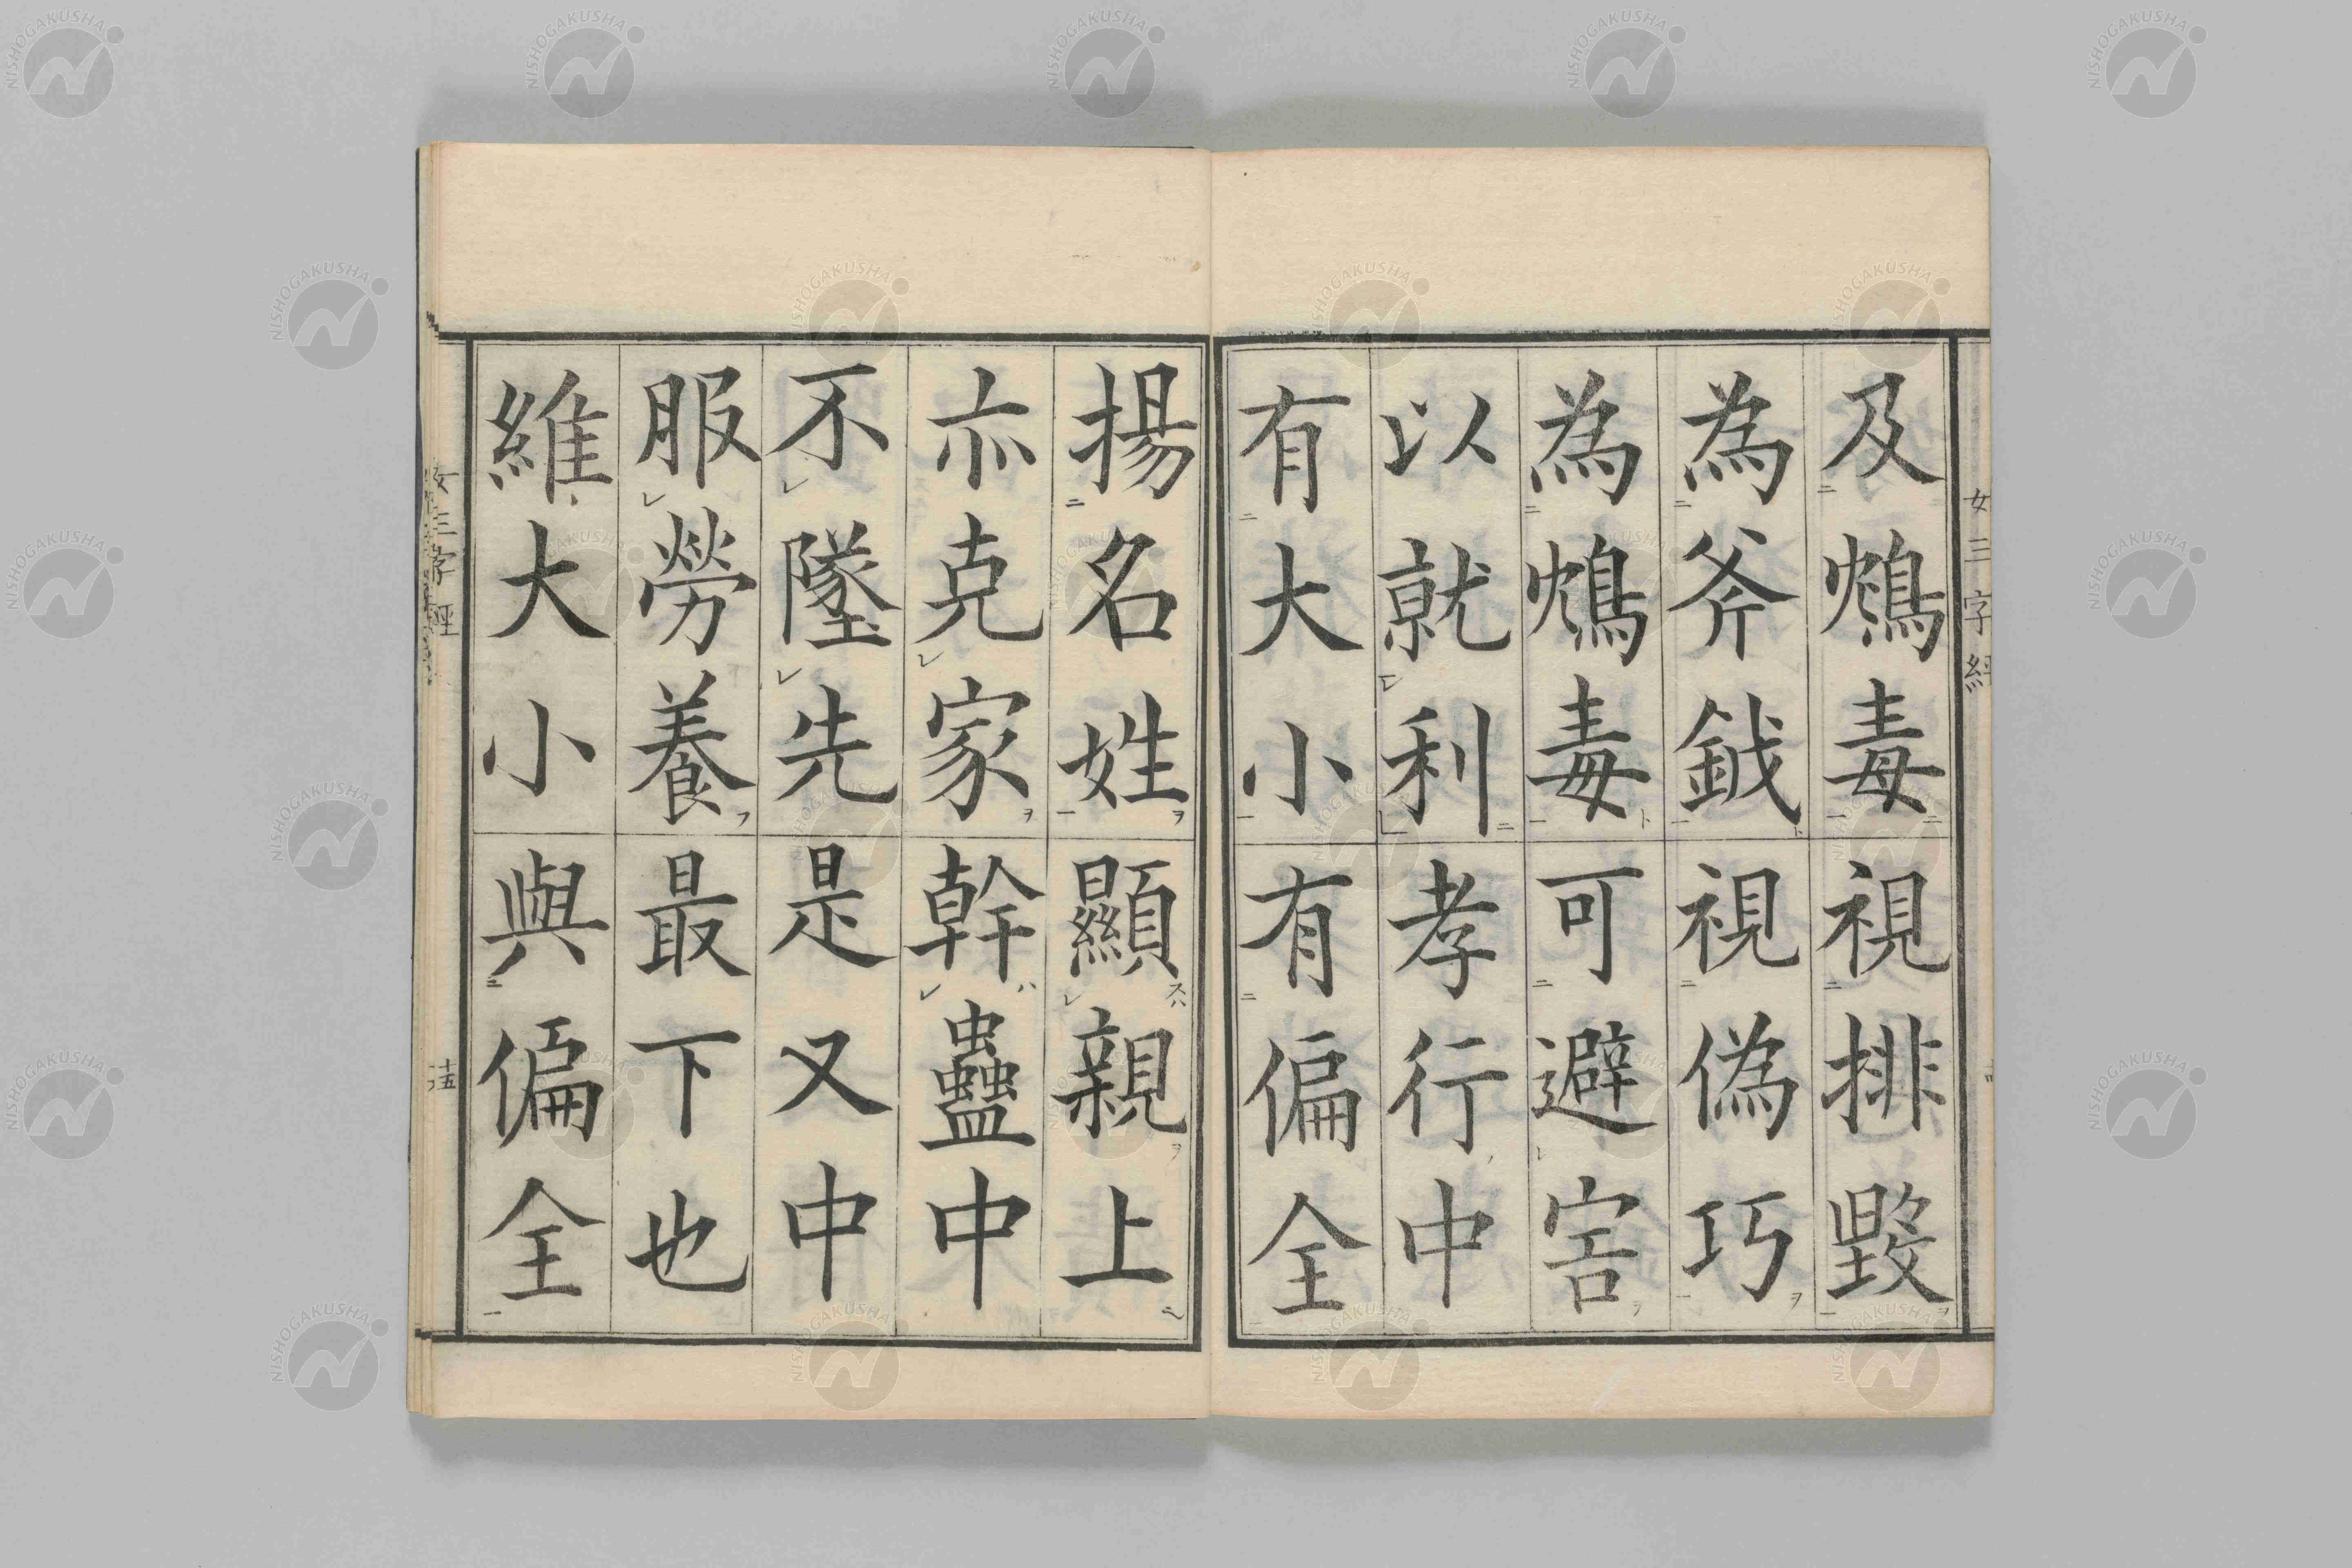 女三字經
及鴆毒視排毀
為斧鉞視偽巧
為鴆毒可避害
以就利孝行中
有大小有偏全
揚名姓顯親上
亦克家幹蠱中
不墜先是又中
服勞養最下也
維大小與偏全
女三字經
十五
NISHOGAKUSHA